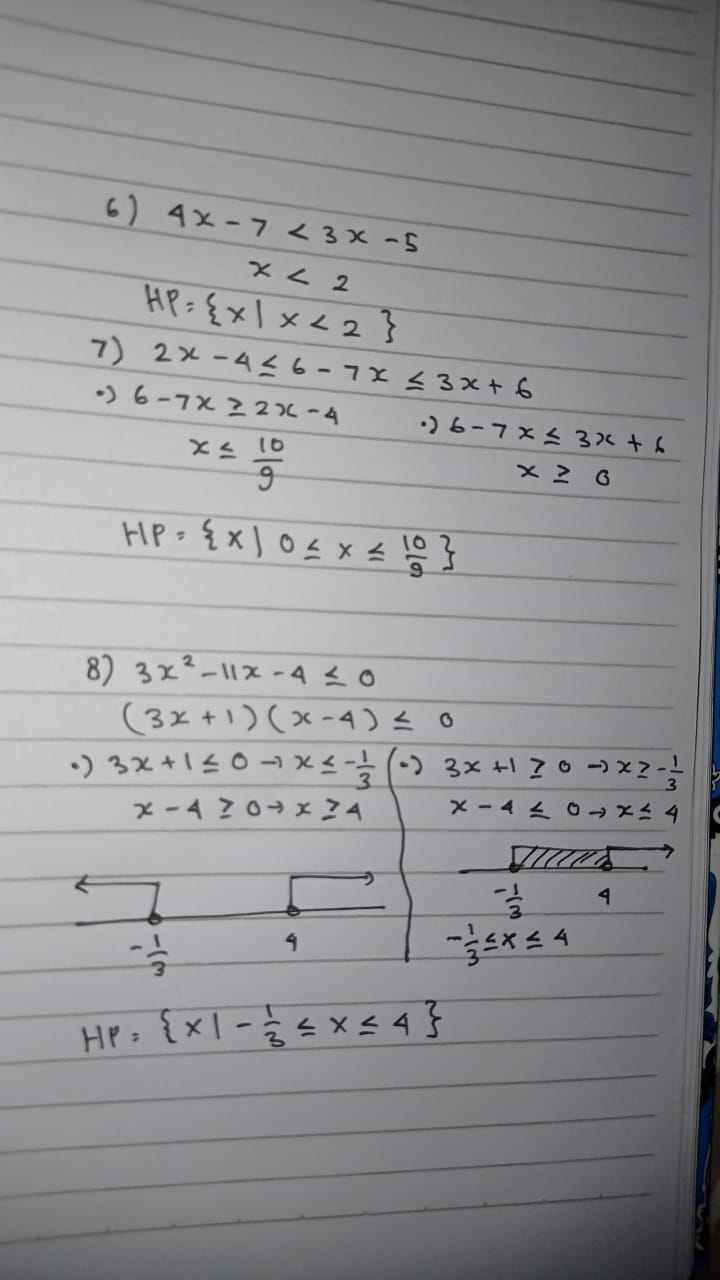 6) 4x - 7 < 3x - 5
x < 2
HP = {x | x < 2}
7) 2x - 4 ≤ 6 - 7x ≤ 3x + 6
•) 6 - 7x ≥ 2x - 4
x ≤ 10/9
•) 6 - 7x ≤ 3x + 6
x ≥ 0
HP = {x | 0 ≤ x ≤ 10/9}
8) 3x² - 11x - 4 ≤ 0
(3x + 1)(x - 4) ≤ 0
•) 3x + 1 ≤ 0 → x ≤ -1/3
x - 4 ≥ 0 → x ≥ 4
-1/3 4
•) 3x + 1 ≥ 0 → x ≥ -1/3
x - 4 ≤ 0 → x ≤ 4
-1/3 4
-1/3 ≤ x ≤ 4
HP = {x | -1/3 ≤ x ≤ 4}